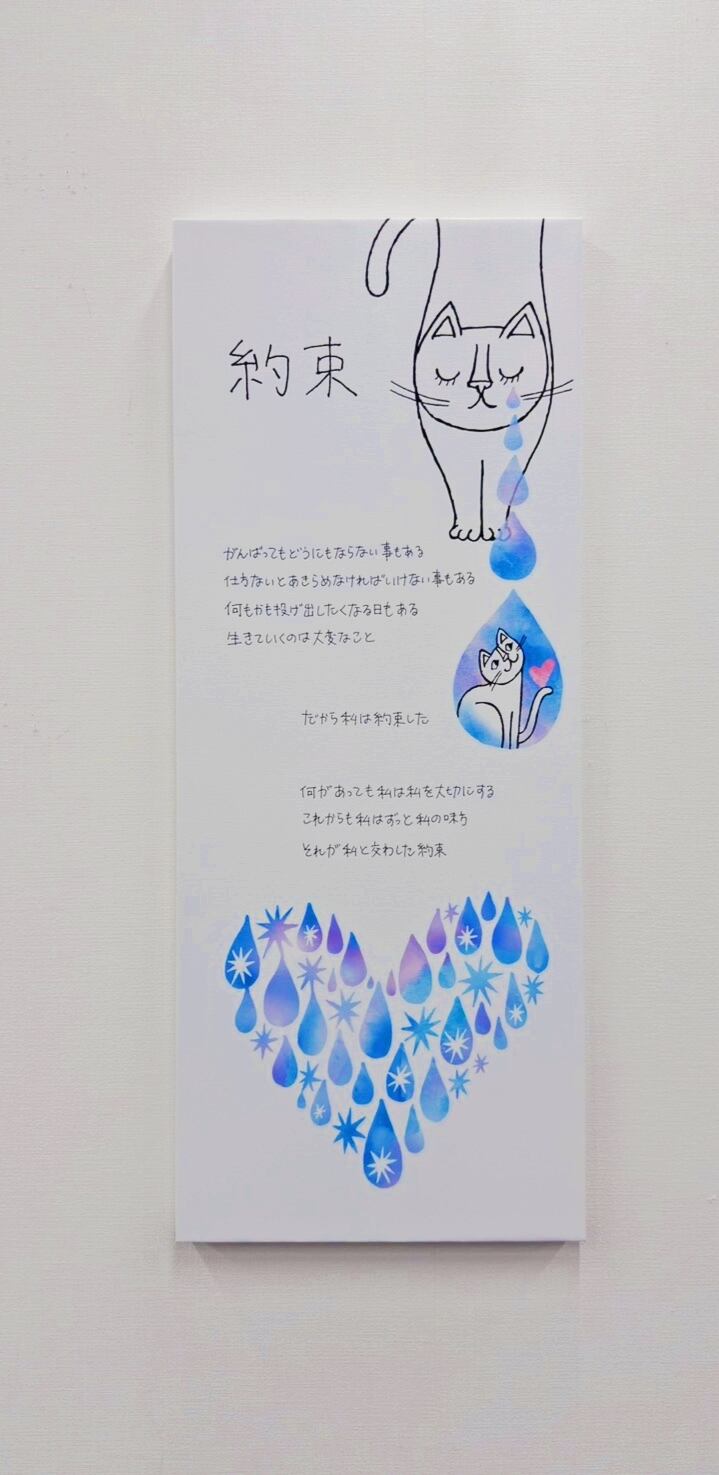 約束
がんばってもどうにもならない事もある
仕方ないとあきらめなければいけない事もある
何もかも投げ出したくなる日もある
生きていくのは大変なこと
だから私は約束した
何があっても私は私を大切にする
これからも私はずっと私の味方
それが私と交わした約束